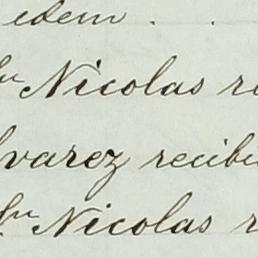 edem . .
Nicolas
lvarez recibi
Nicolas